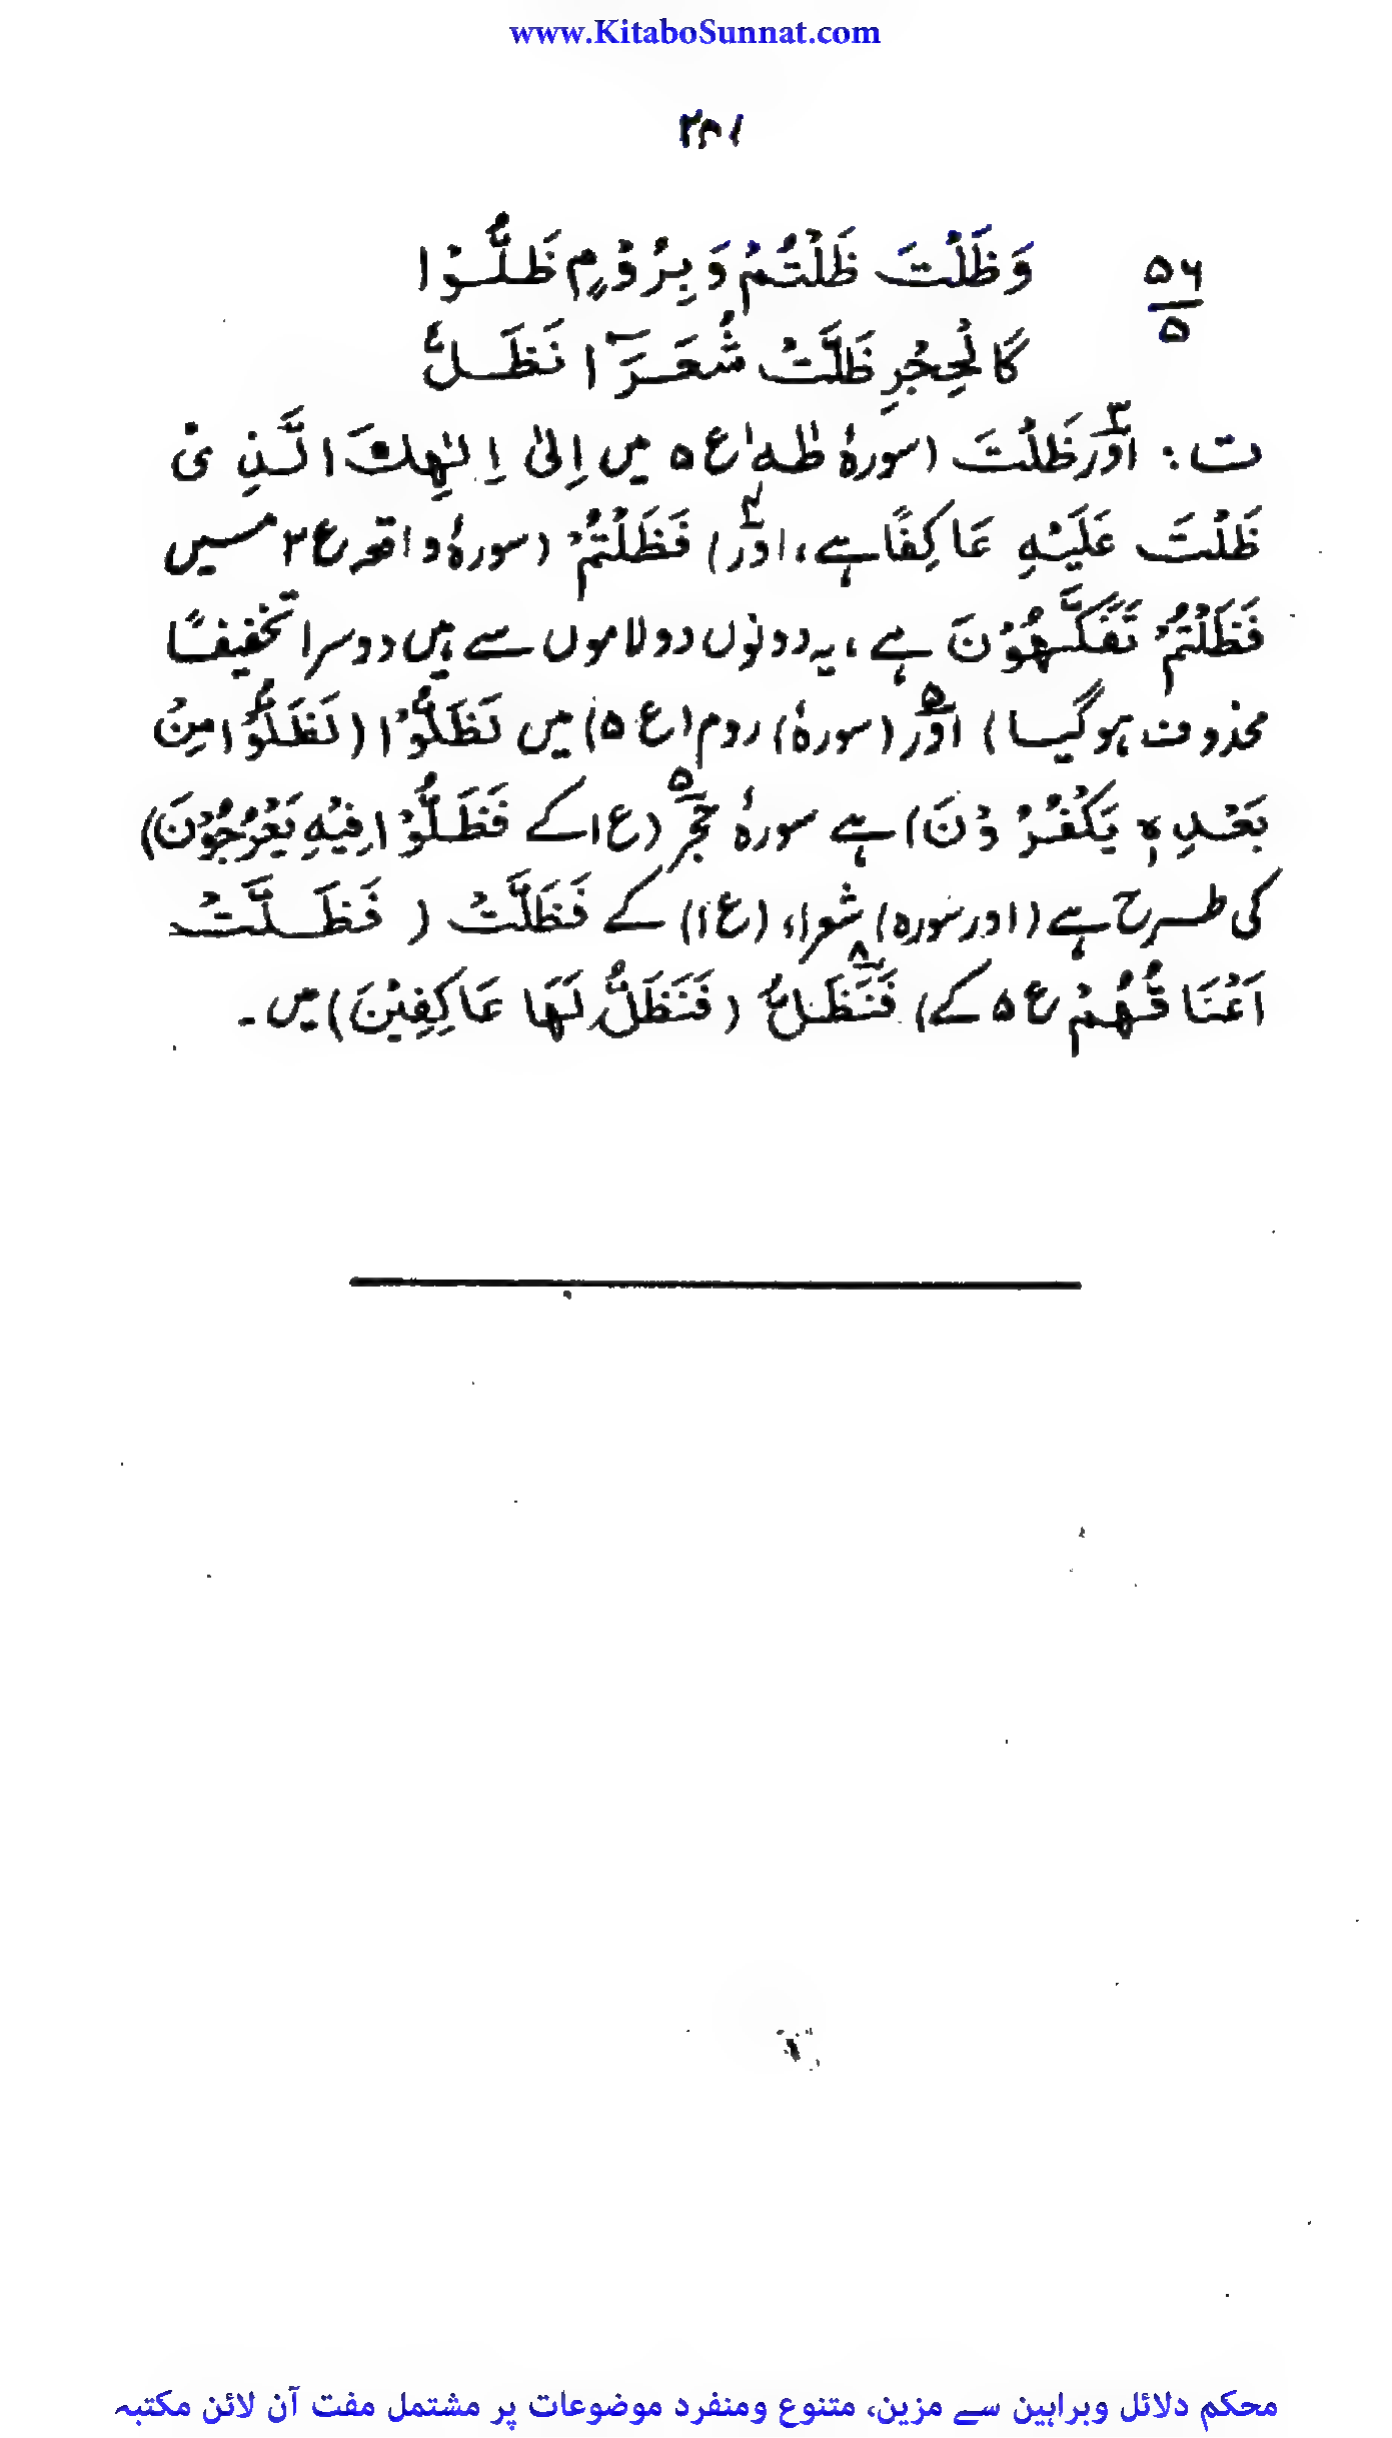 www.KitaboSunnat.com
۲۸۱
۵۶
۵
وَظَلْتَ ظَلْتُمْ وَبِرُوْمٍ ظَلُّوْا
كَالْحِجْرِ ظَلَّتْ شُعَرَآ نَظَلُّ
ت : اور۳ ظَلْتَ (سورۂ طٰهٰ ع ۵ میں اِلىٰ اِلٰهِكَ الَّذِىْ
ظَلْتَ عَلَيْهِ عَاكِفًا ہے، اور۴) فَظَلْتُمْ (سورۂ واقعہ ع ۲ میں
فَظَلْتُمْ تَفَكَّهُوْنَ ہے، یہ دونوں دو لاموں سے ہیں دوسرا تخفیفًا
محذوف ہو گیا) اور۵ (سورۂ) روم (ع ۵) میں لَظَلُّوْا (لَظَلُّوْا مِنْۢ
بَعْدِهٖ يَكْفُرُوْنَ) ہے سورۂ حجر۵ (ع ۱ کے فَظَلُّوْا فِيْهِ يَعْرُجُوْنَ)
کی طرح ہے (اور سورہ) شعراء (ع ۱) کے فَظَلَّتْ ( فَظَلَّتْ
اَعْنَاقُهُمْ ع ۵ کے) فَنَظَلُّ۸ (فَنَظَلُّ لَهَا عَاكِفِيْنَ) میں۔
محکم دلائل وبراہین سے مزین، متنوع ومنفرد موضوعات پر مشتمل مفت آن لائن مکتبہ